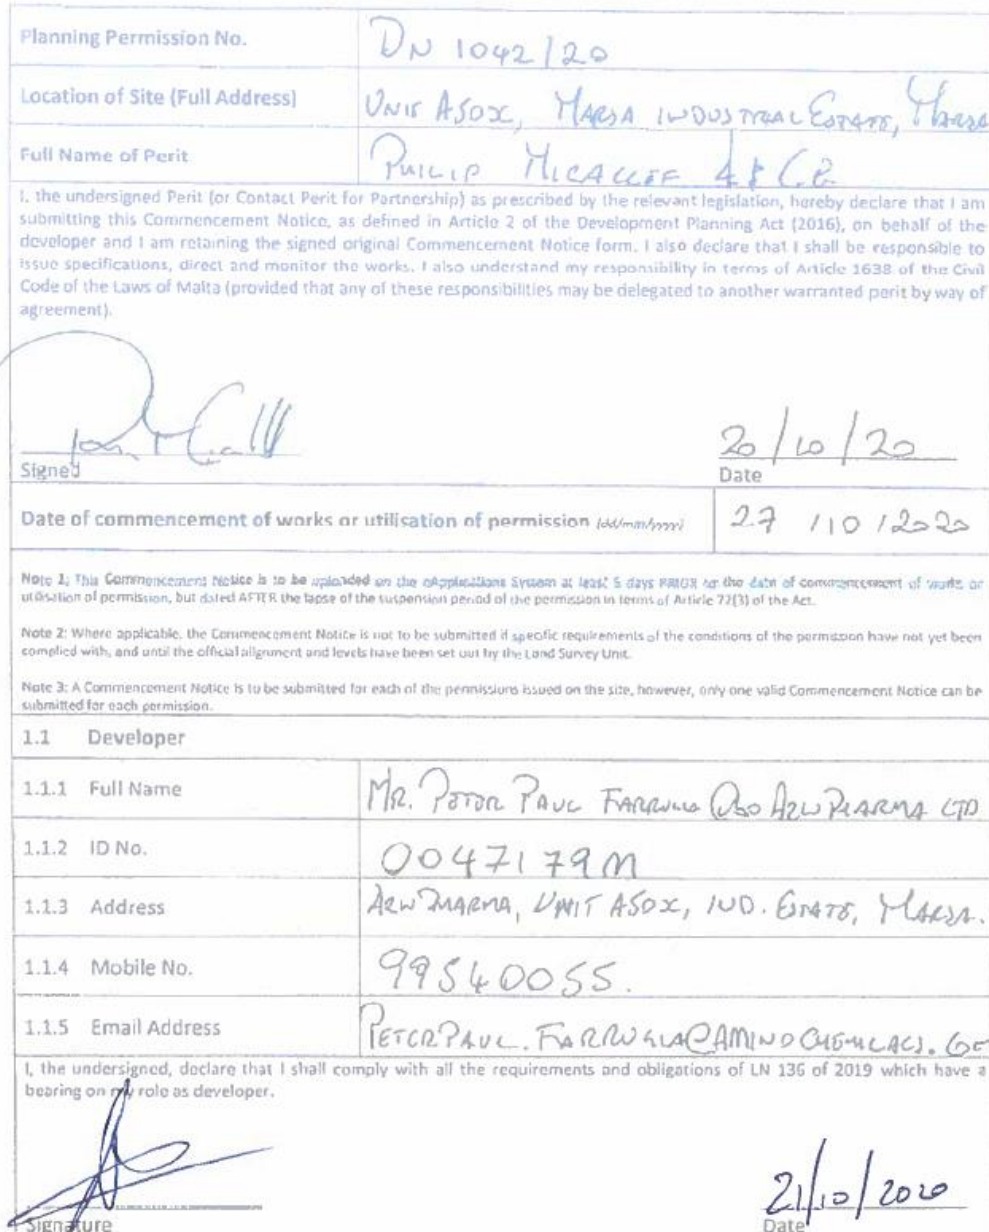 Planning Permission No. DN 1042/20
Location of Site (Full Address) UNIT A50X, MARSA INDUSTRIAL ESTATE, MARSA
Full Name of Perit PHILIP MICALLEF
I, the undersigned Perit (or Contact Perit for Partnership) as prescribed by the relevant legislation, hereby declare that I am
submitting this Commencement Notice, as defined in Article 2 of the Development Planning Act (2016), on behalf of the
developer and I am retaining the signed original Commencement Notice form. I also declare that I shall be responsible to
issue specifications, direct and monitor the works. I also understand my responsibility in terms of Article 1638 of the Civil
Code of the Laws of Malta (provided that any of these responsibilities may be delegated to another warranted perit by way of
agreement).
20/10/20
Signed Date
Date of commencement of works or utilisation of permission (dd/mm/yyyy) 27 /10 /2020
Note 1: This Commencement Notice is to be uploaded on the eApplications System at least 5 days PRIOR to the date of commencement of works or
utilisation of permission, but dated AFTER the lapse of the suspension period of the permission in terms of Article 72(3) of the Act.
Note 2: Where applicable, the Commencement Notice is not to be submitted if specific requirements of the conditions of the permission have not yet been
complied with, and until the official alignment and levels have been set out by the Land Survey Unit.
Note 3: A Commencement Notice is to be submitted for each of the permissions issued on the site, however, only one valid Commencement Notice can be
submitted for each permission.
1.1 Developer
1.1.1 Full Name MR. PETER PAUL FARRUGIA OBO ARW PHARMA LTD
1.1.2 ID No. 0047179M
1.1.3 Address ARW PHARMA, UNIT A50X, IND. ESTATE, MARSA.
1.1.4 Mobile No. 99540055.
1.1.5 Email Address PETERPAUL.FARRUGIA@AMINOCHEMICALS.
I, the undersigned, declare that I shall comply with all the requirements and obligations of LN 136 of 2019 which have a
bearing on my role as developer.
21/10/2020
Signature Date